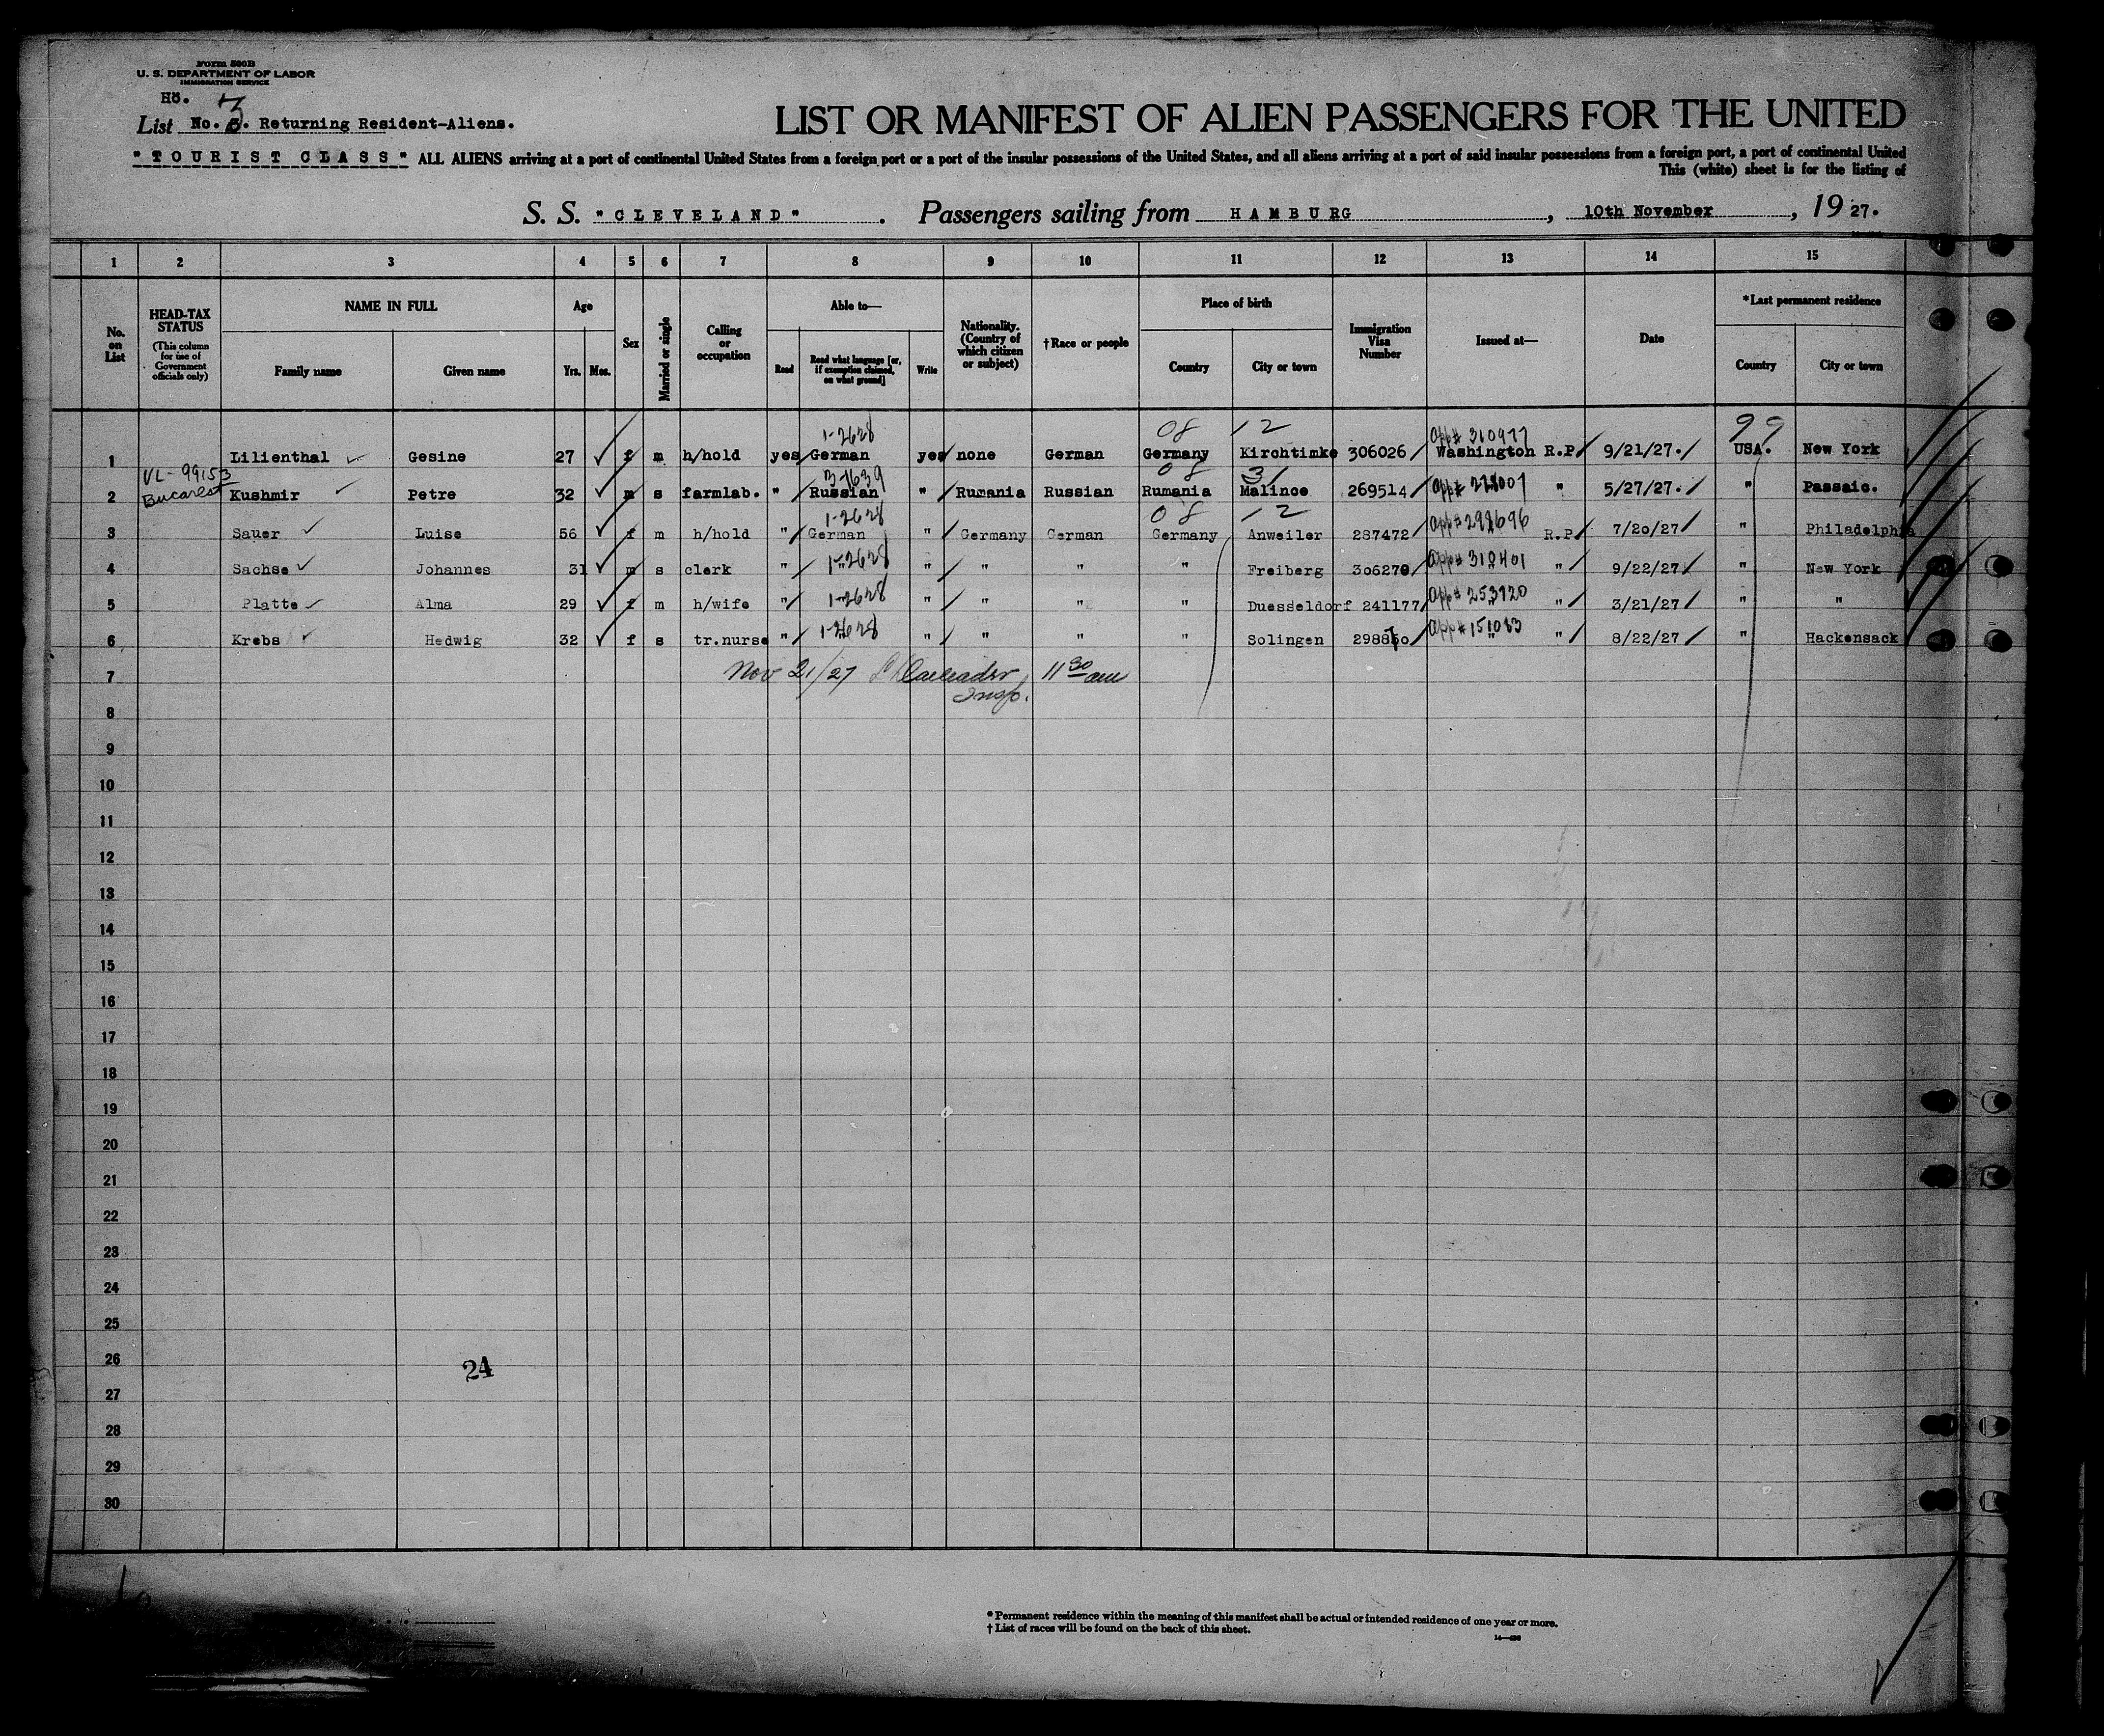 Form 500B
U. S. DEPARTMENT OF LABOR
IMMIGRATION SERVICE
No. 3
List No. 3. Returning Resident-Aliens.
LIST OR MANIFEST OF ALIEN PASSENGERS FOR THE UNITED
"TOURIST CLASS" ALL ALIENS arriving at a port of continental United States from a foreign port or a port of the insular possessions of the United States, and all aliens arriving at a port of said insular possessions from a foreign port, a port of continental United
This (white) sheet is for the listing of
S. S. "CLEVELAND". Passengers sailing from HAMBURG, 10th November, 1927.
1 2 3 4 5 6 7 8 9 10 11 12 13 14 15
No. on List
HEAD-TAX STATUS
(This column for use of Government officials only)
NAME IN FULL
Family name Given name
Age
Yrs. Mos.
Sex
Married or single
Calling or occupation
Able to—
Read
Read what language [or, if exemption claimed, on what ground]
Write
Nationality. (Country of which citizen or subject)
†Race or people
Place of birth
Country City or town
Immigration Visa Number
Issued at—
Date
*Last permanent residence
Country City or town
1-2628 08 12 App# 310977 99
1 Lilienthal Gesine 27 f m h/hold yes German yes none German Germany Kirchtimke 306026 Washington R.P. 9/21/27. USA. New York
VL-99153 08 31
Bucarest
2 Kushmir Petre 32 m s farmlab. " Russian " Rumania Russian Rumania Malince 269514 " 5/27/27. " Passaic.
1-2628 08 12 App#
3 Sauer Luise 56 f m h/hold " German " Germany German Germany Anweiler 287472 R.P. 7/20/27 " Philadelphia
4 Sachse Johannes 31 m s clerk " 1-2628 " " " " Freiberg 306278 App# 318401 " 9/22/27 " New York
5 Platte Alma 29 f m h/wife " 1-2628 " " " " Duesseldorf 241177 App# 253920 " " 3/21/27 " "
6 Krebs Hedwig 32 f s tr.nurse " 1-2628 " " " " Solingen App# 151083 " " 8/22/27 " Hackensack
7 Nov 21/27 11 30 am
Insp.
8
9
10
11
12
13
14
15
16
17
18
19
20
21
22
23
24
25
26
24
27
28
29
30
*Permanent residence within the meaning of this manifest shall be actual or intended residence of one year or more.
†List of races will be found on the back of this sheet.